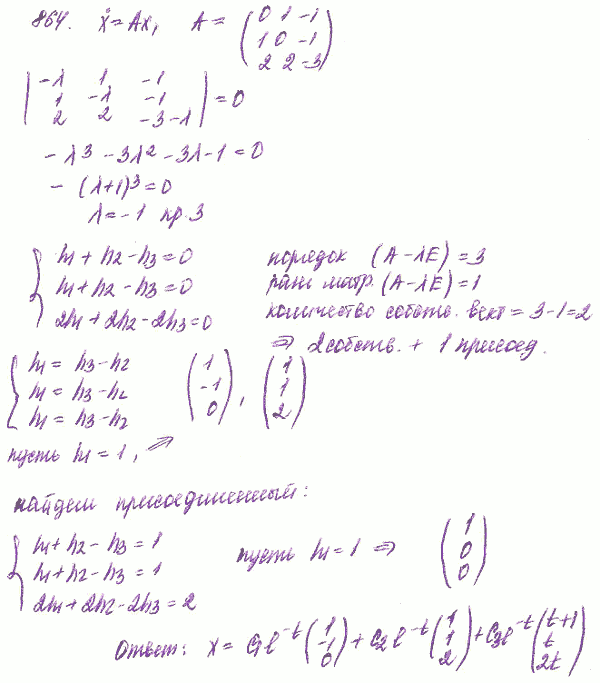 864. ẋ = Ax, A = (0 1 -1
1 0 -1
2 2 -3)
|-λ 1 -1
1 -λ -1
2 2 -3-λ| = 0
-λ³ - 3λ² - 3λ - 1 = 0
-(λ+1)³ = 0
λ = -1 кр. 3
{h₁ + h₂ - h₃ = 0
h₁ + h₂ - h₃ = 0
2h₁ + 2h₂ - 2h₃ = 0
порядок (A - λE) = 3
ранг матр. (A - λE) = 1
количество собств. вект = 3-1=2
⇒ 2 собств. + 1 присоед.
{h₁ = h₃ - h₂
h₁ = h₃ - h₂
h₁ = h₃ - h₂
(1
-1
0), (1
1
2)
пусть h₁ = 1, ⇒
найдем присоединенный:
{h₁ + h₂ - h₃ = 1
h₁ + h₂ - h₃ = 1
2h₁ + 2h₂ - 2h₃ = 2
пусть h₁ = 1 ⇒ (1
0
0)
Ответ: x = C₁e^-t (1
-1
0) + C₂e^-t (1
1
2) + C₃e^-t (t+1
t
2t)